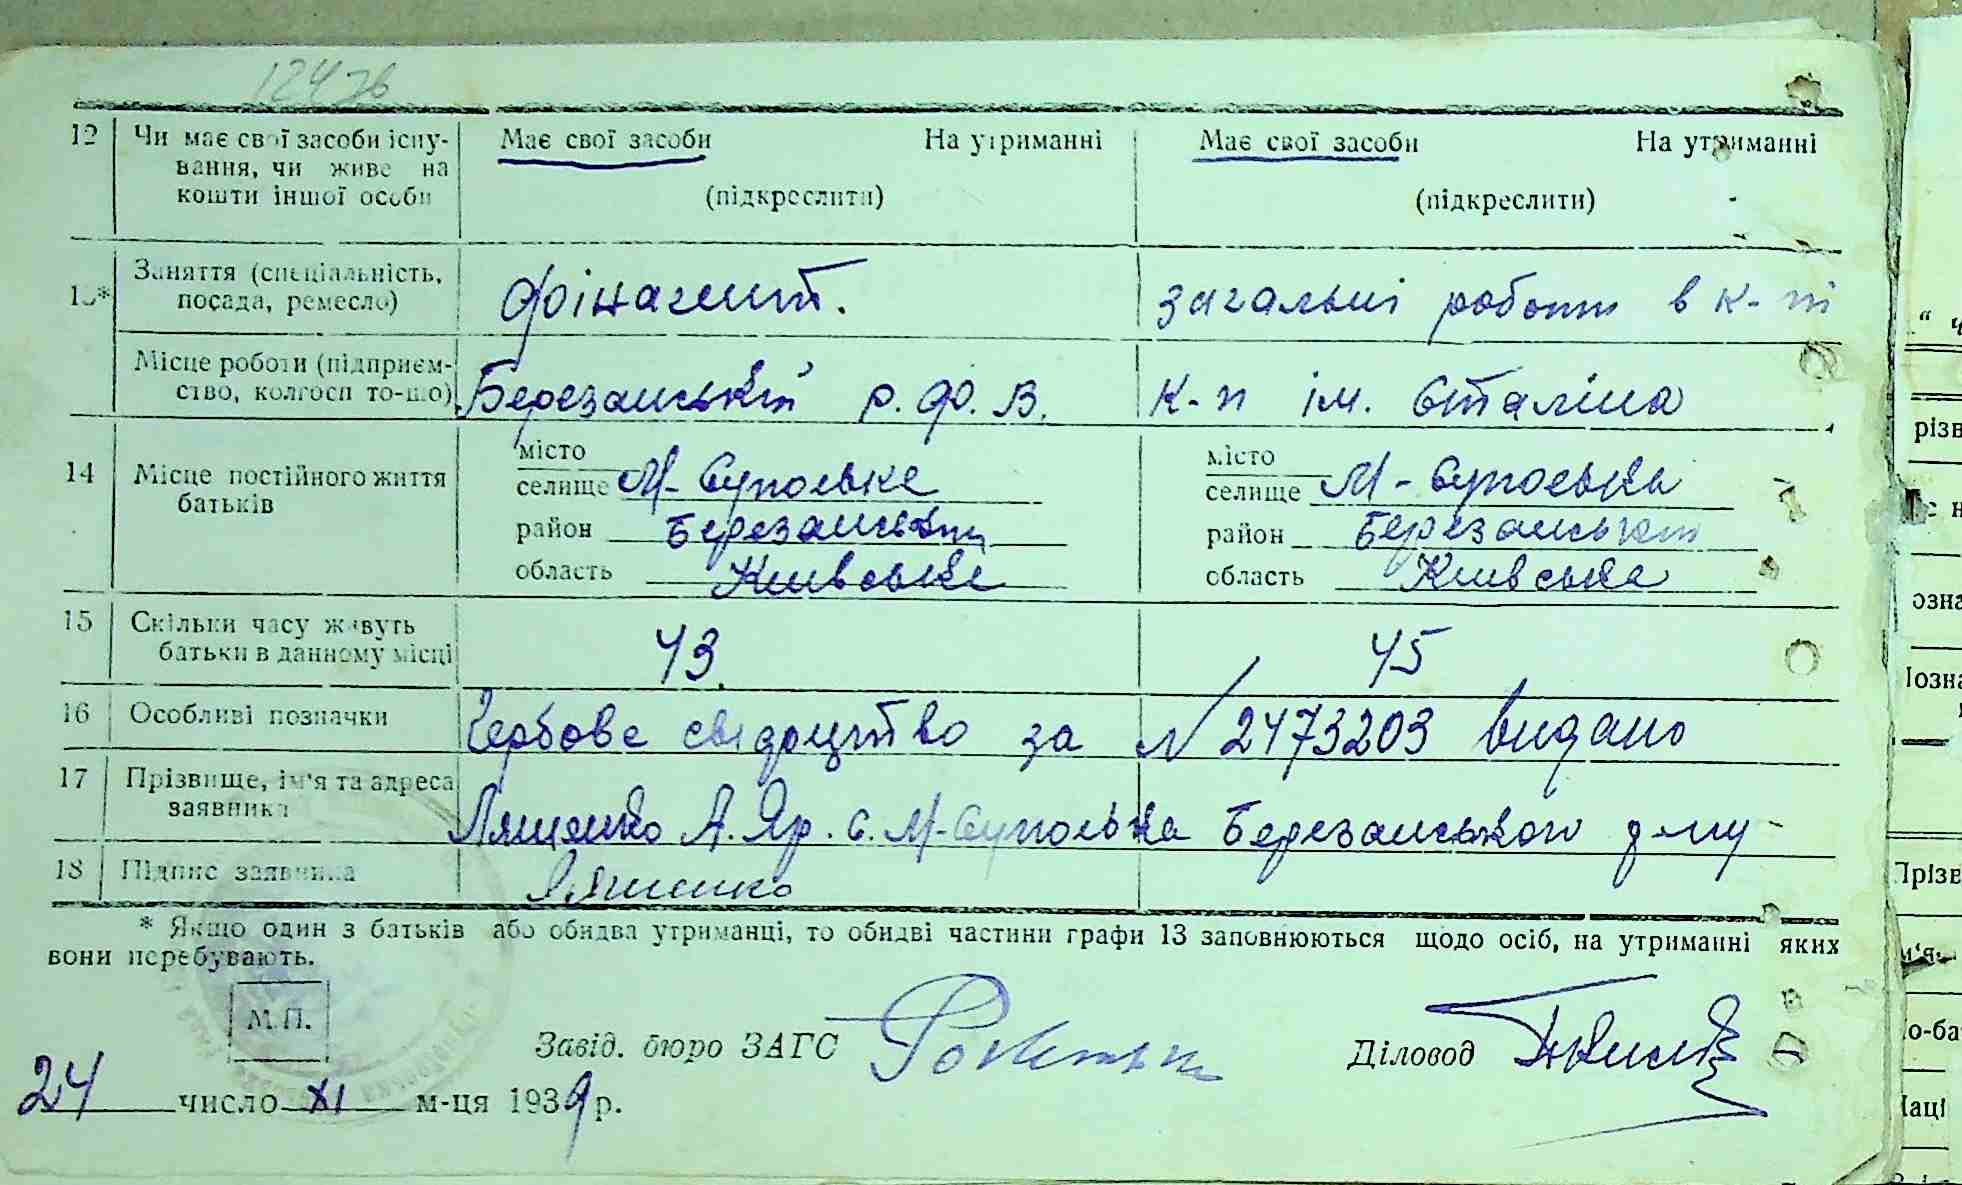 1247в
12 Чи має свої засоби існу- Має свої засоби На утриманні Має свої засоби На утриманні
вання, чи живе на
кошти іншої особи (підкреслити) (підкреслити)
13* Заняття (спеціальність, фінагент. загальні роботи в к-пі
посада, ремесло)
Місце роботи (підприєм- Березанський р. ф. в. к-п ім. Сталіна
ство, колгосп то-що)
14 Місце постійного життя місто місто
батьків селище М-Супоєвка селище М-Супоєвка
район Березанський район Березанський
область Київська область Київська
15 Скільки часу живуть 43 45
батьки в данному місці
16 Особливі позначки Гербове свідоцтво за № 2473203 видано
17 Прізвище, ім'я та адреса Ляшенко А. Яр. с. М-Супоєвка Березанського
заявника
18 Підпис заявника Ляшенко
* Якщо один з батьків або обидва утриманці, то обидві частини графи 13 заповнюються щодо осіб, на утриманні яких
вони перебувають.
М.П.
Завід. бюро ЗАГС Діловод
24 число XI м-ця 1939 р.